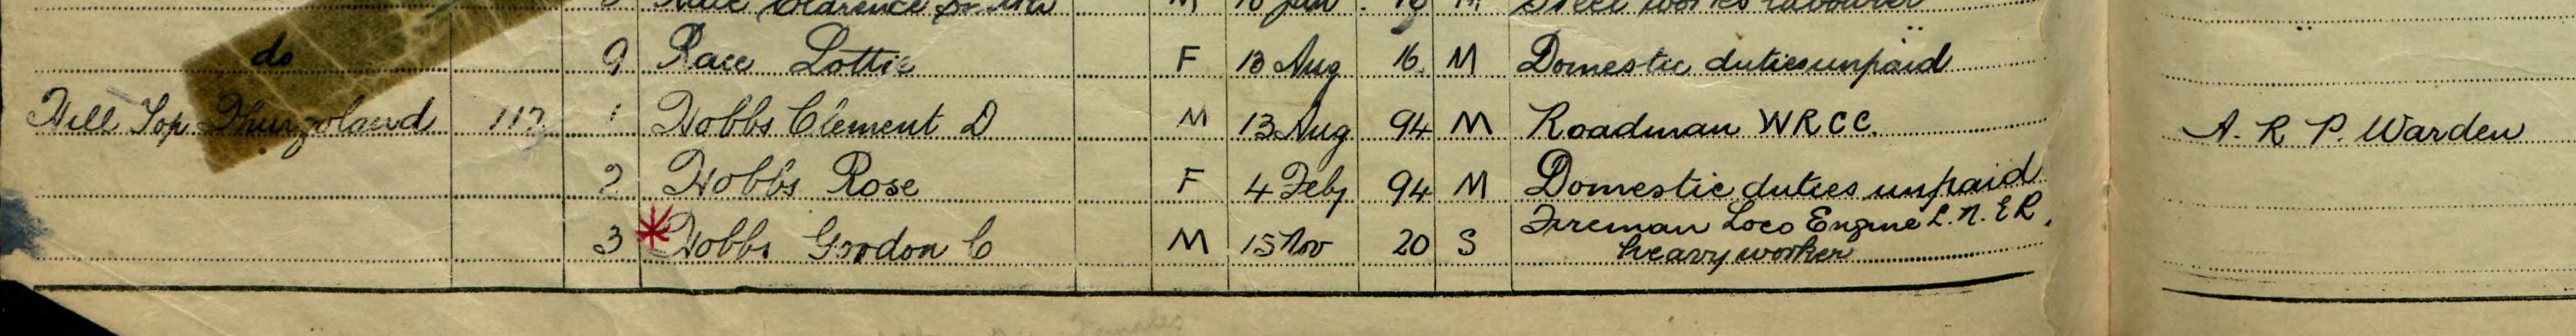 Clarence M 18 Jan 18 M Steel works labourer
do 9 Race Lottie F 13 Aug 16 M Domestic duties unpaid
Hill Top Thurgoland 117 1 Hobbs Clement D M 13 Aug 94 M Roadman W R C C. A. R P. Warden
2 Hobbs Rose F 4 Feby 94 M Domestic duties unpaid
3 * Hobbs Gordon C M 15 Nov 20 S Fireman Loco Engine L. N. E R.
heavy worker